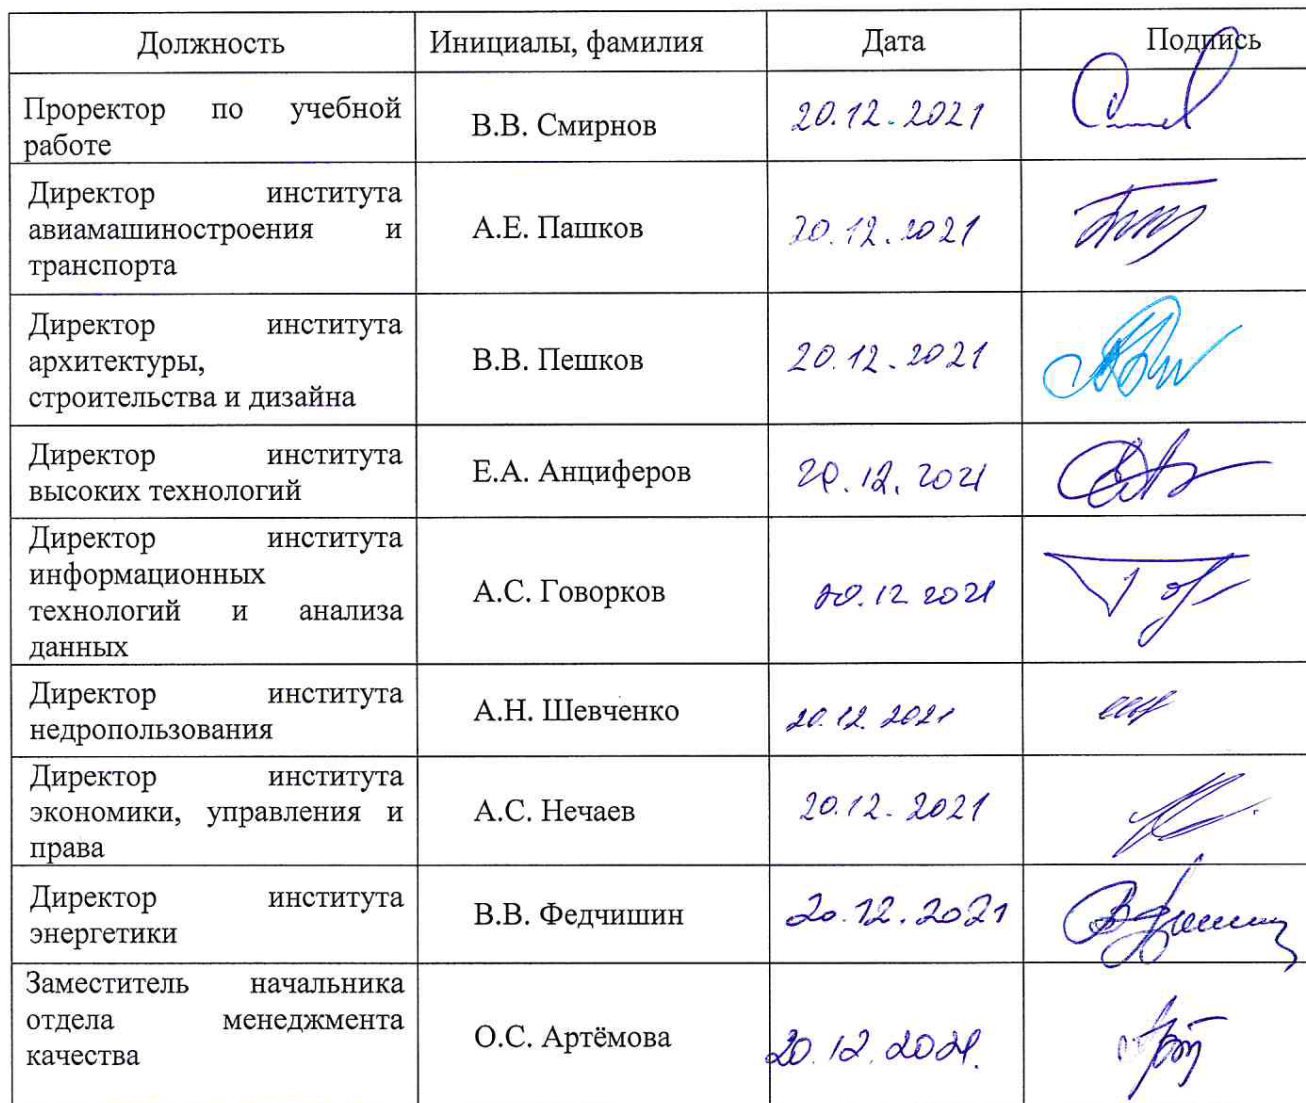 Должность Инициалы, фамилия Дата Подпись
Проректор по учебной
работе
В.В. Смирнов 20.12.2021
Директор института
авиамашиностроения и
транспорта
А.Е. Пашков 20.12.2021
Директор института
архитектуры,
строительства и дизайна
В.В. Пешков 20.12.2021
Директор института
высоких технологий
Е.А. Анциферов 20.12.2021
Директор института
информационных
технологий и анализа
данных
А.С. Говорков 20.12 2021
Директор института
недропользования
А.Н. Шевченко 20.12.2021
Директор института
экономики, управления и
права
А.С. Нечаев 20.12.2021
Директор института
энергетики
В.В. Федчишин 20.12.2021
Заместитель начальника
отдела менеджмента
качества
О.С. Артёмова 20.12.2021.